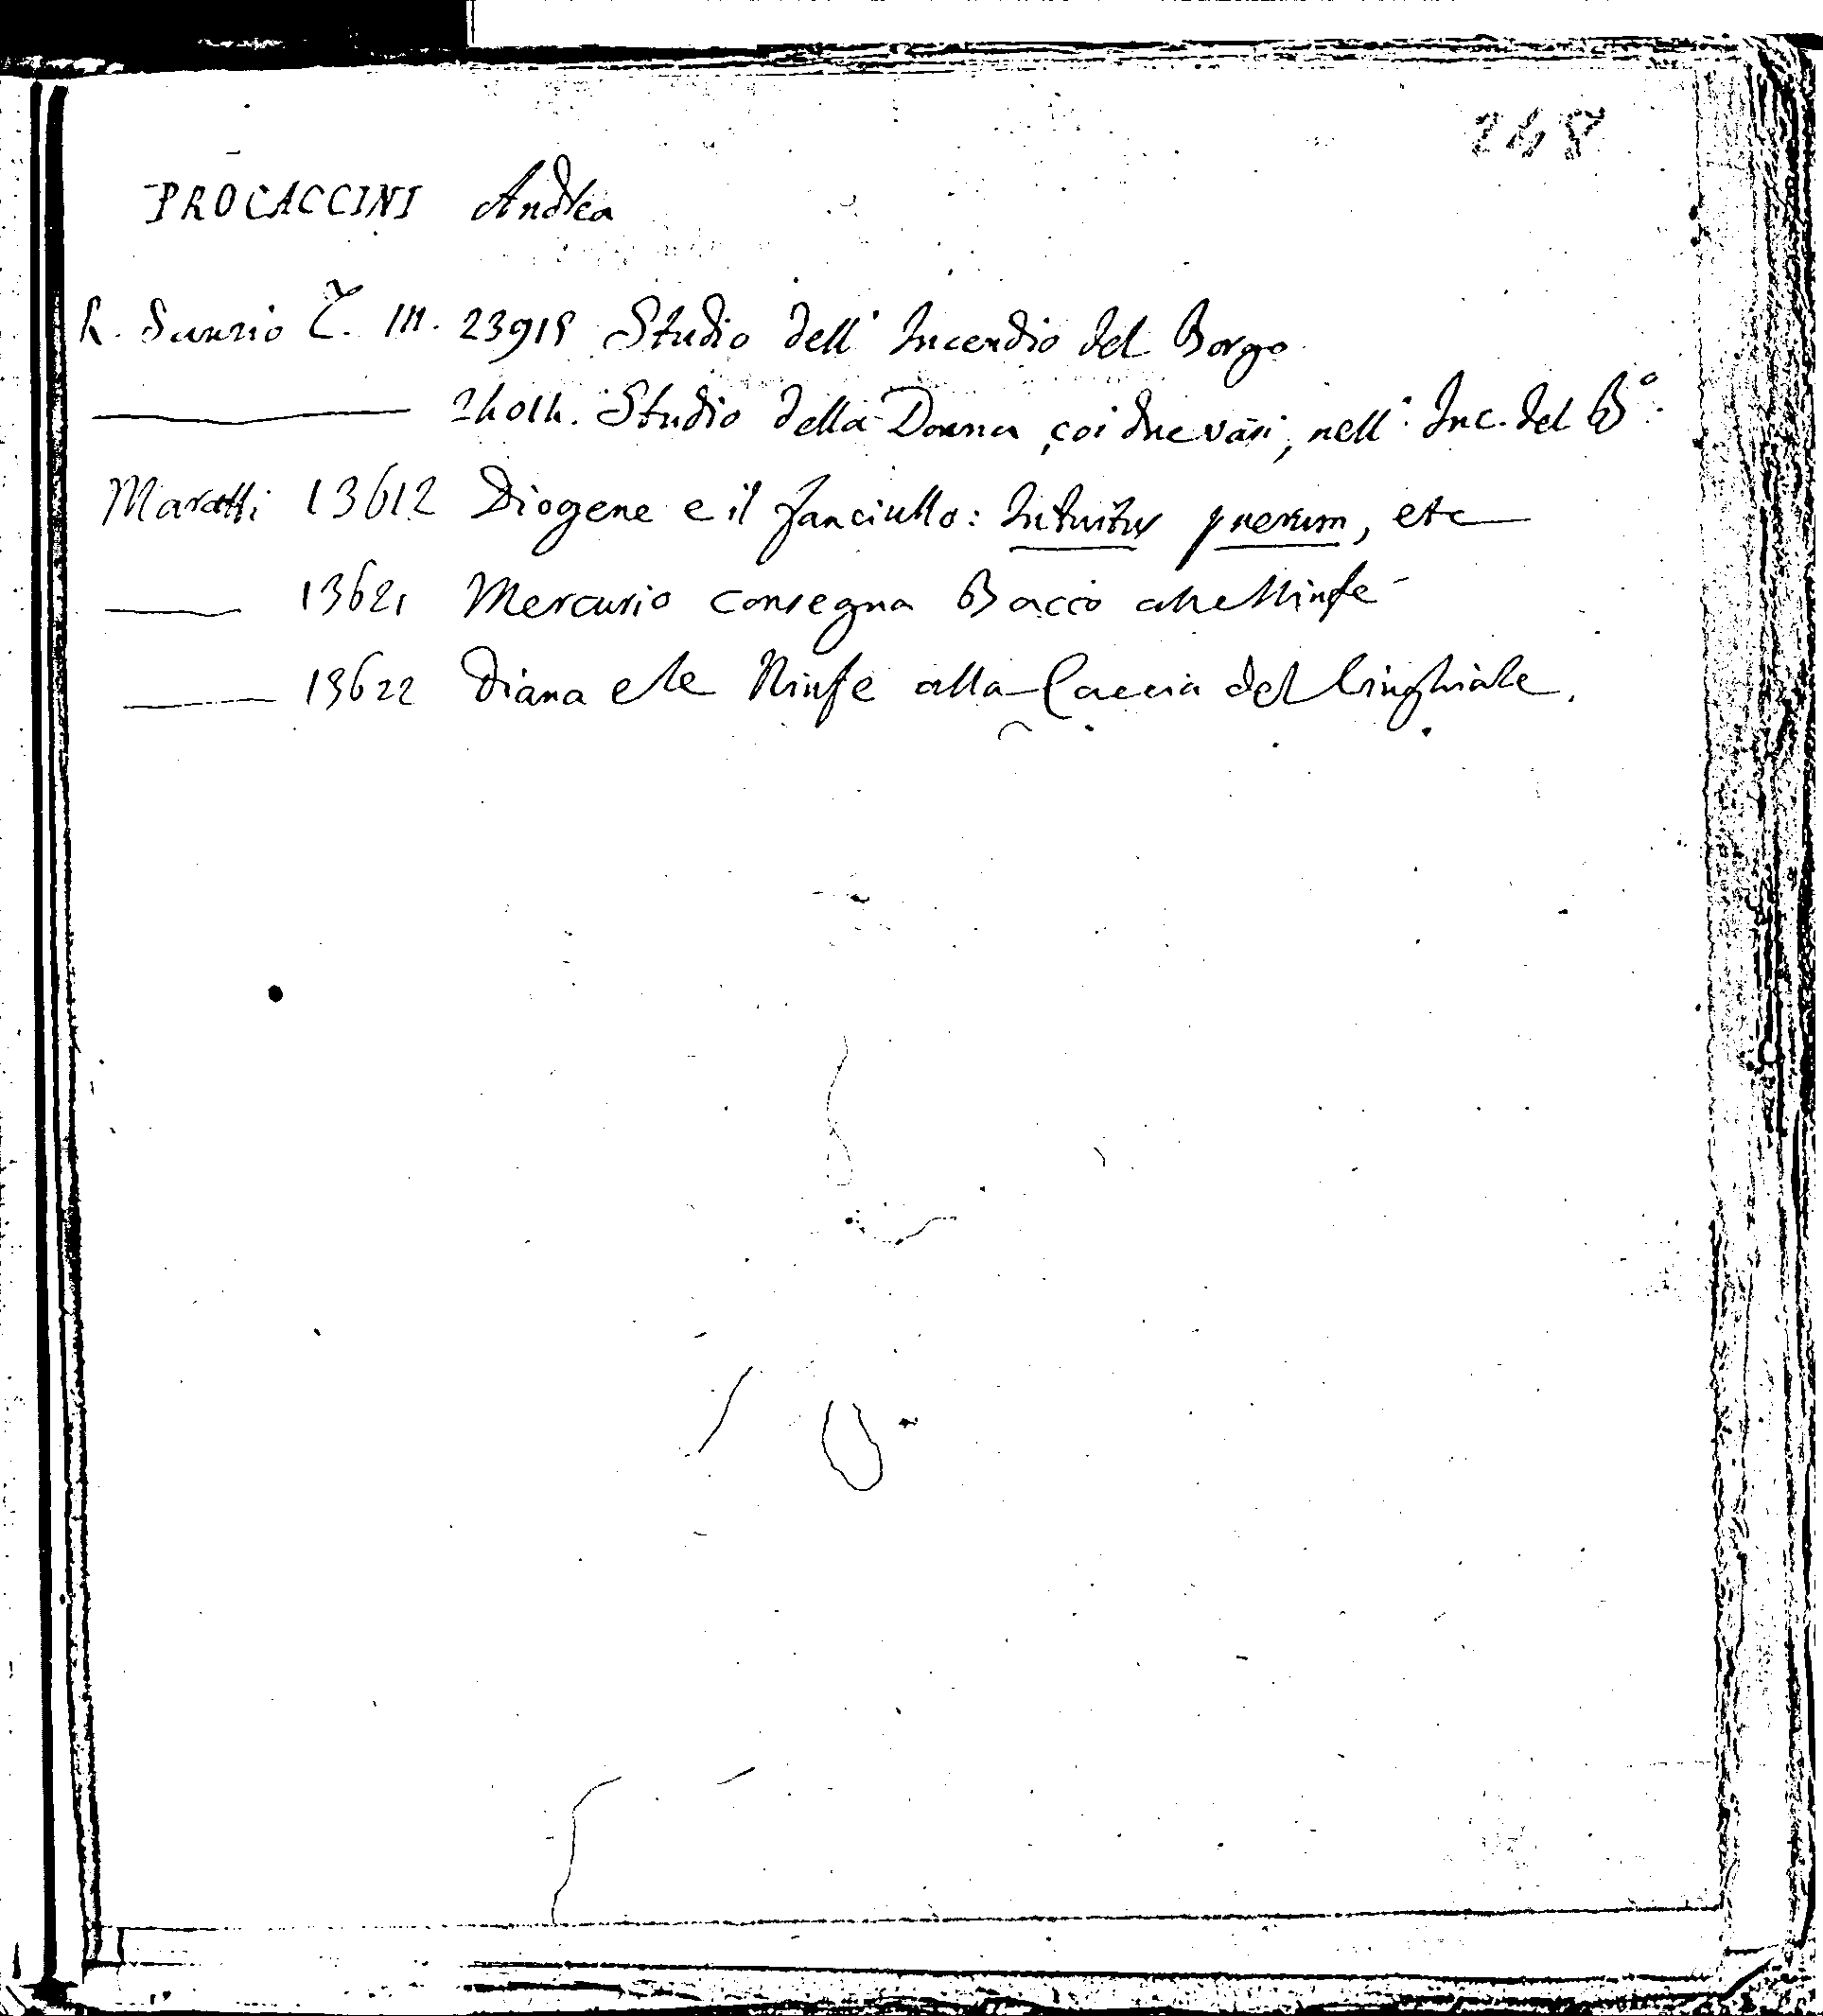 248
PROCACCINI Andrea
R. Sanzio T. III. 23915 Studio dell' Incendio del Borgo
24014. Studio della Donna, coi due vasi, nell' Inc. del B°.
Maratti 13612 Diogene e il fanciullo: Intuitus puerum, etc
13621 Mercurio consegna Bacco alle Ninfe
13622 Diana e le Ninfe alla Caccia del Cinghiale.